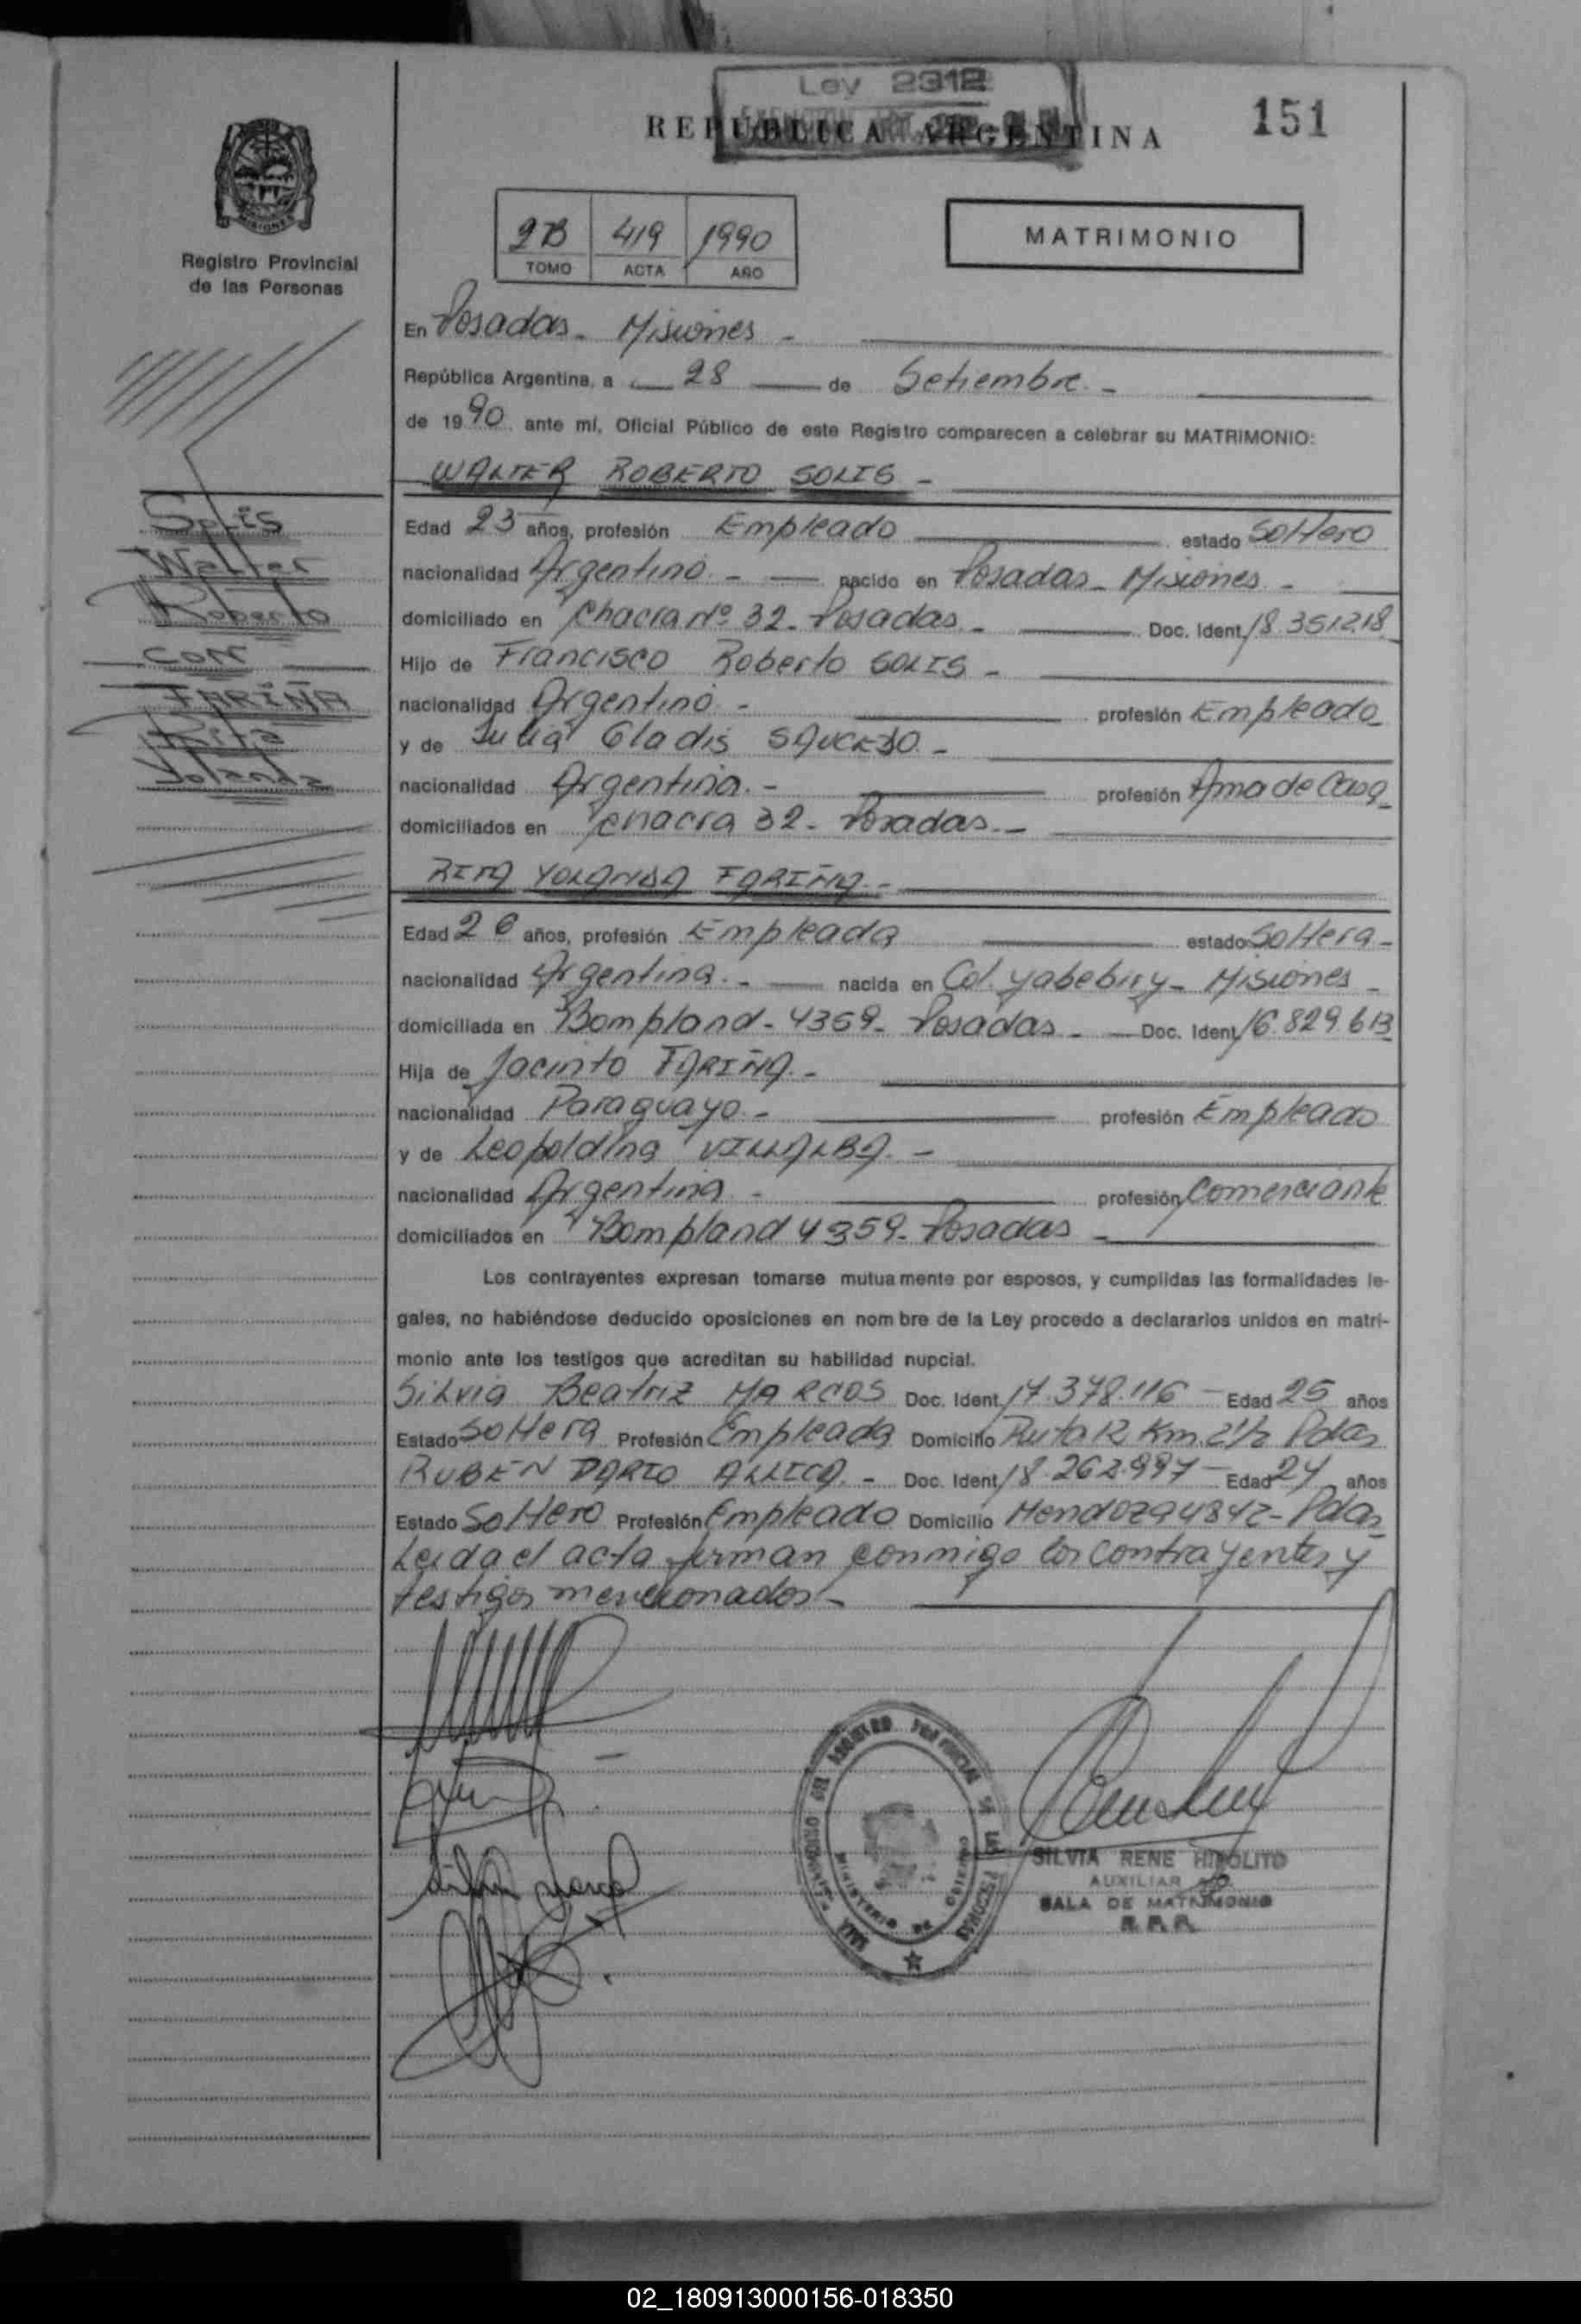 Ley 2312
REPUBLICA ARGENTINA
151
MISIONES
Registro Provincial
de las Personas
2B 419 1990
TOMO ACTA AÑO
MATRIMONIO
En Posadas - Misiones -
República Argentina, a 28 de Setiembre -
de 1990 ante mí, Oficial Público de este Registro comparecen a celebrar su MATRIMONIO:
WALTER ROBERTO SOLIS -
Solis
Walter
Roberto
con
FARIÑA
Rita
Yolanda
Edad 23 años, profesión Empleado estado Soltero
nacionalidad Argentino - nacido en Posadas - Misiones -
domiciliado en Chacra Nº 32 - Posadas - Doc. Ident. 18.351.218
Hijo de Francisco Roberto SOLIS -
nacionalidad Argentino - profesión Empleado
y de Julia Gladis SAUCEDO -
nacionalidad Argentina - profesión Ama de Casa
domiciliados en Chacra 32 - Posadas -
RITA YOLANDA FARIÑA -
Edad 26 años, profesión Empleada estado Soltera -
nacionalidad Argentina - nacida en Col. Yabebiry - Misiones -
domiciliada en Bompland - 4359 - Posadas - Doc. Ident. 16.829.613
Hija de Jacinto FARIÑA -
nacionalidad Paraguayo - profesión Empleado
y de Leopoldina VILLALBA -
nacionalidad Argentina - profesión Comerciante
domiciliados en Bompland 4359 - Posadas -
Los contrayentes expresan tomarse mutuamente por esposos, y cumplidas las formalidades le-
gales, no habiéndose deducido oposiciones en nombre de la Ley procedo a declararlos unidos en matri-
monio ante los testigos que acreditan su habilidad nupcial.
Silvia Beatriz MARCOS Doc. Ident. 17.378.116 - Edad 25 años
Estado Soltera Profesión Empleada Domicilio Ruta 12 Km. 2½ Pdas
RUBEN DARIO ALLICA - Doc. Ident. 18.262.997 - Edad 24 años
Estado Soltero Profesión Empleado Domicilio Mendoza 4842 - Pdas
Leida el acta firman conmigo los contrayentes y
testigos mencionados -
SILVIA RENE HIPOLITO
AUXILIAR
SALA DE MATRIMONIO
R. P. P.
MINISTERIO DE GOBIERNO
02_180913000156-018350